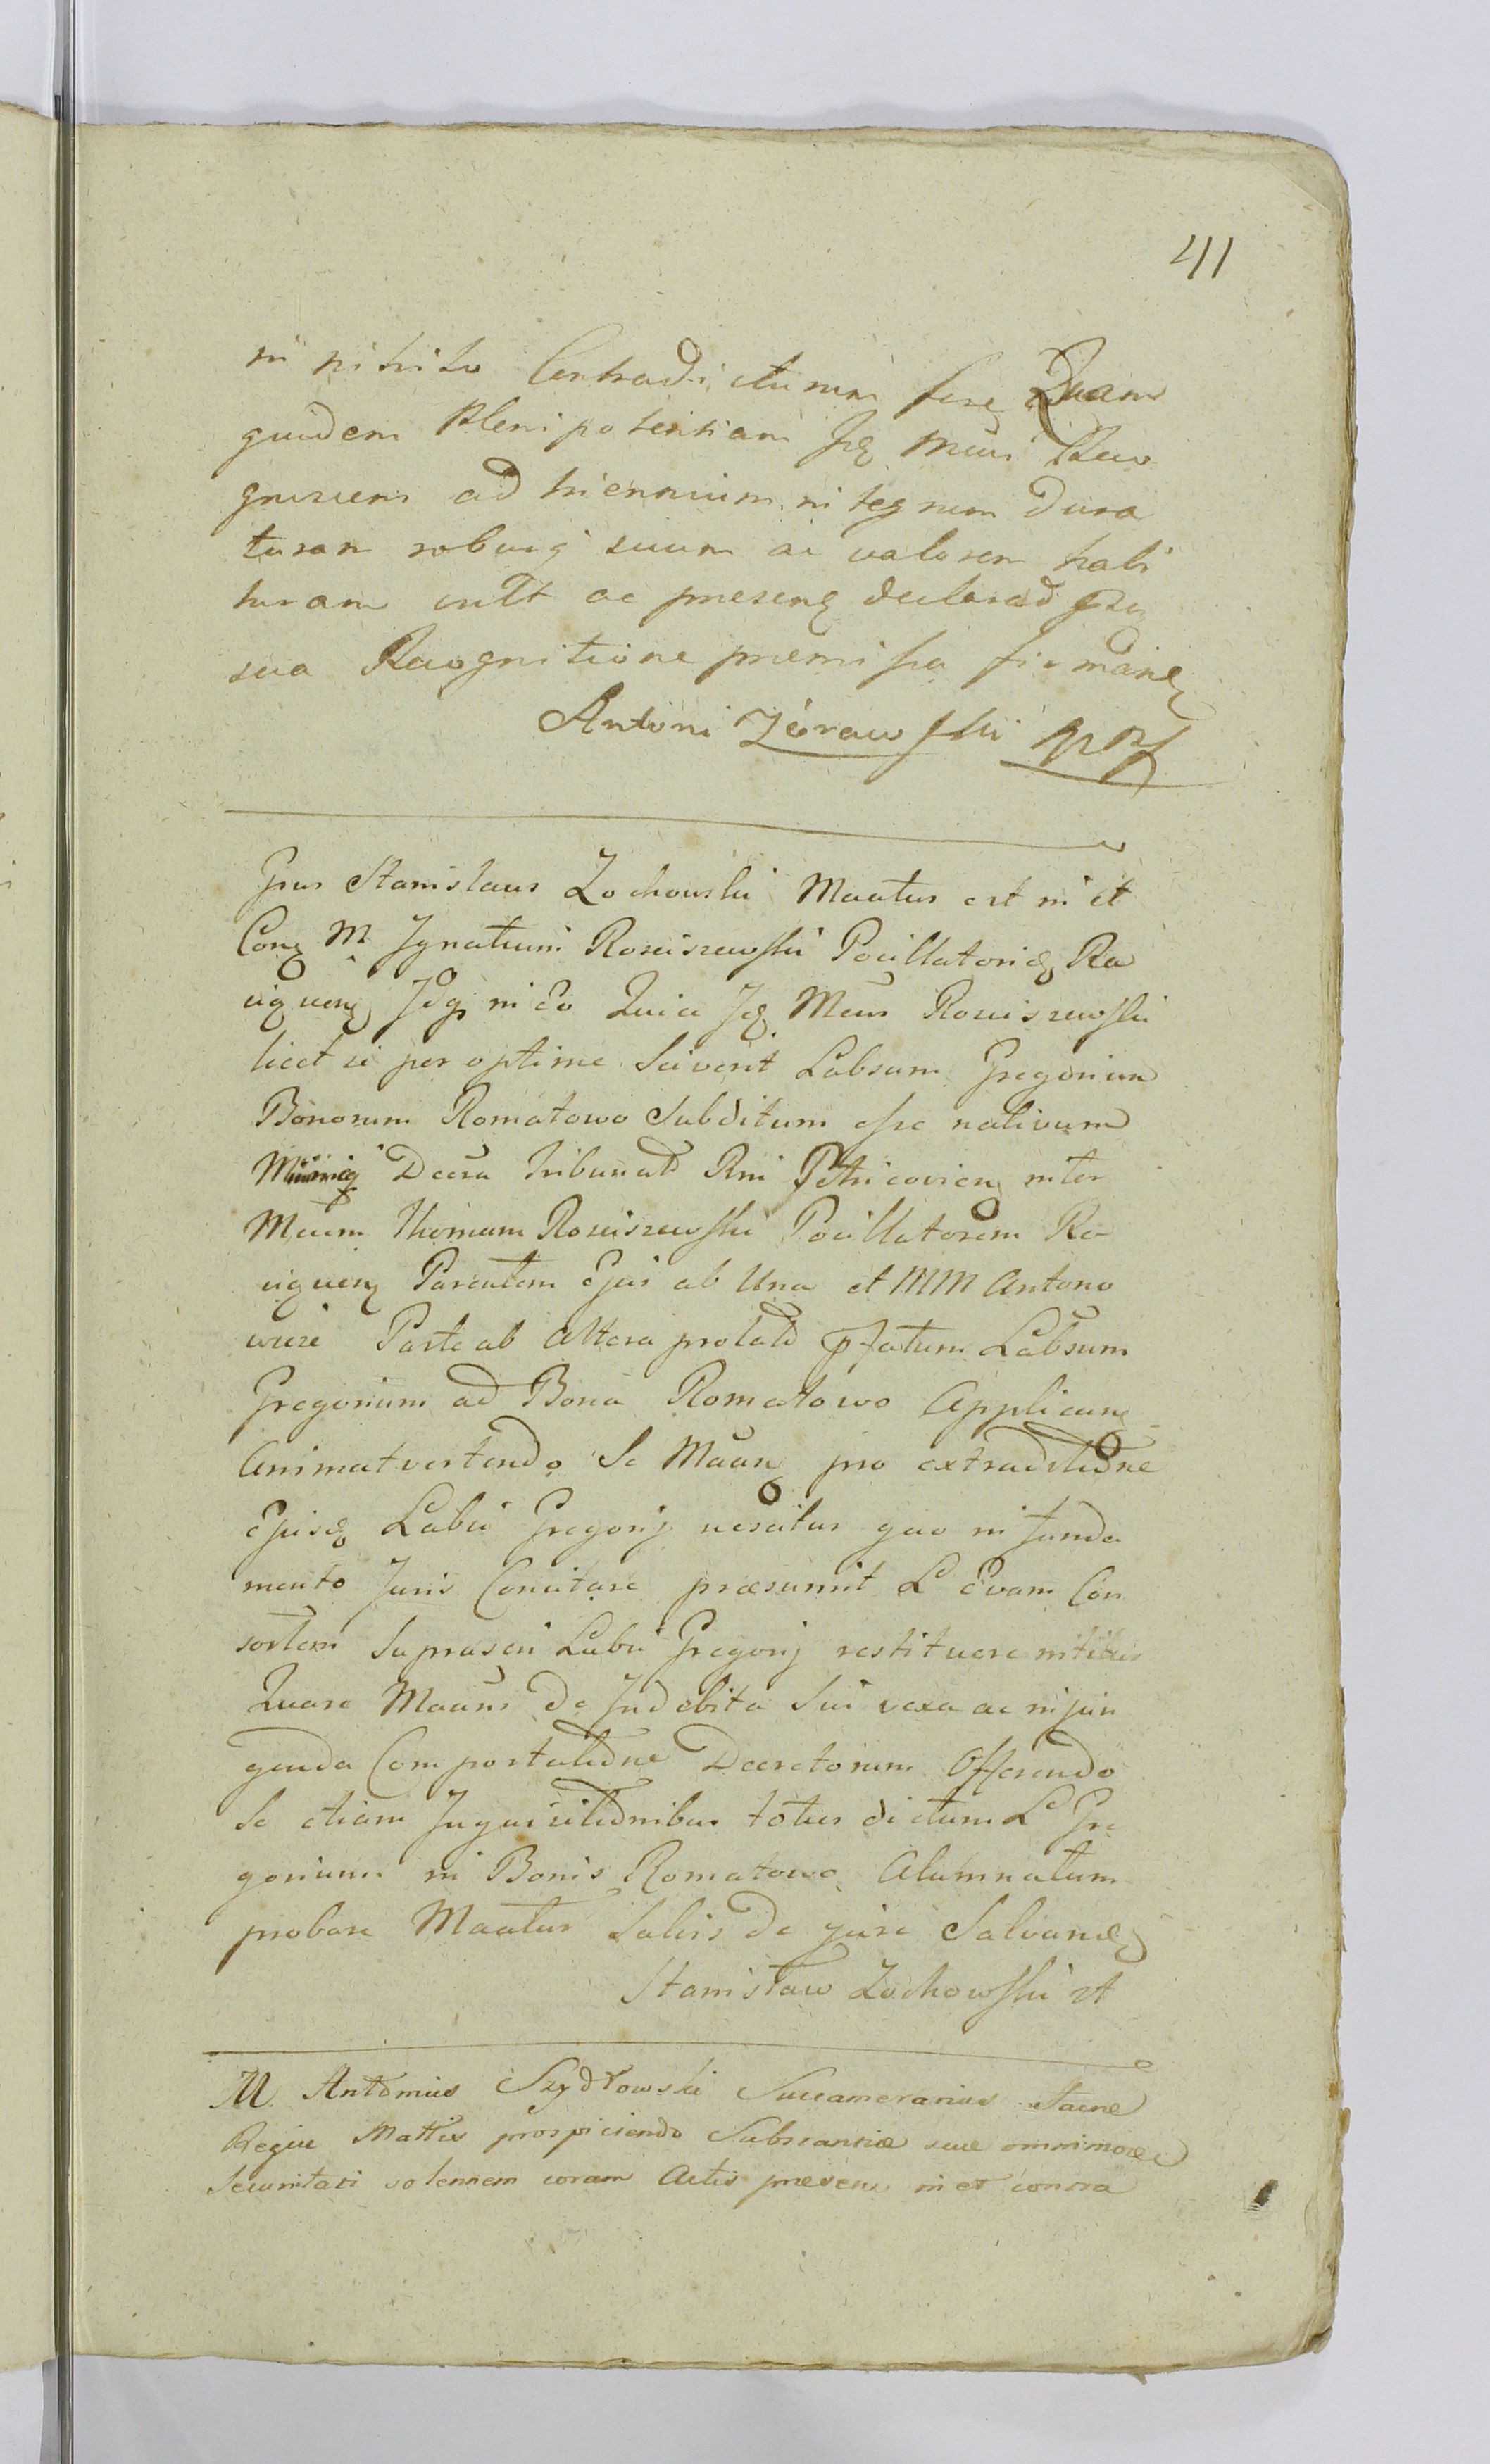 411
in nihilo Contradicturum fore Quam
quidem Plenipotentiam Jdę Mcus Reco
gnoscens ad triennium integrum dura
turam roburq suum ac valorem habi
turam vult ac presenę declarað
sua Recognitione premissa firmanę
Antoni Zórawski mp
Gsus Stanislaus Zochowski Maatus est in et
Conę M. Ignatium Rosciszewski Pocillatoridę Ra
ciąż venę Jdq in eo Quia Jdę Mcus Rosciszewski
licet si per optime Sciverit Labsum Gregorium
Bonorum Romatowo Subditum esse nativum
Decra Tribunals Rni Petricovien inter
Mcum Thomam Rosciszewski Pocillatorem Ra
ciąż venę Parentem Ejus ab Una et MM Antono
wicze Parte ab Altera prolato pfatum Labsum
Gregorium ad Bona Romatowo Applicanę
Animatvertendo Se Maanę pro extraditione
Ejusdę Labsi Gregorij nescitus quo in funda
mento Juris Concitare præsumit L Evam Con
sortem Suprascri Labsi Gregorij restituere nititur
Quare Maans de Indebita Sui vexa ac injun
genda Comportatione Decretorum Offerendo
Se etiam Inquisitionibus toties dictum L Gre
gorium in Bonis Romatowo Alumnatum
probare Maatus Salvis de jure Salvandę
Stanisław Zochowski mp
M. Antonius Szydłowski Succamerarius Sacræ
Regiæ Mattis prospiciendo Substantiæ suæ omnimodæ
Securitati solennem coram Actis presenę in et contra